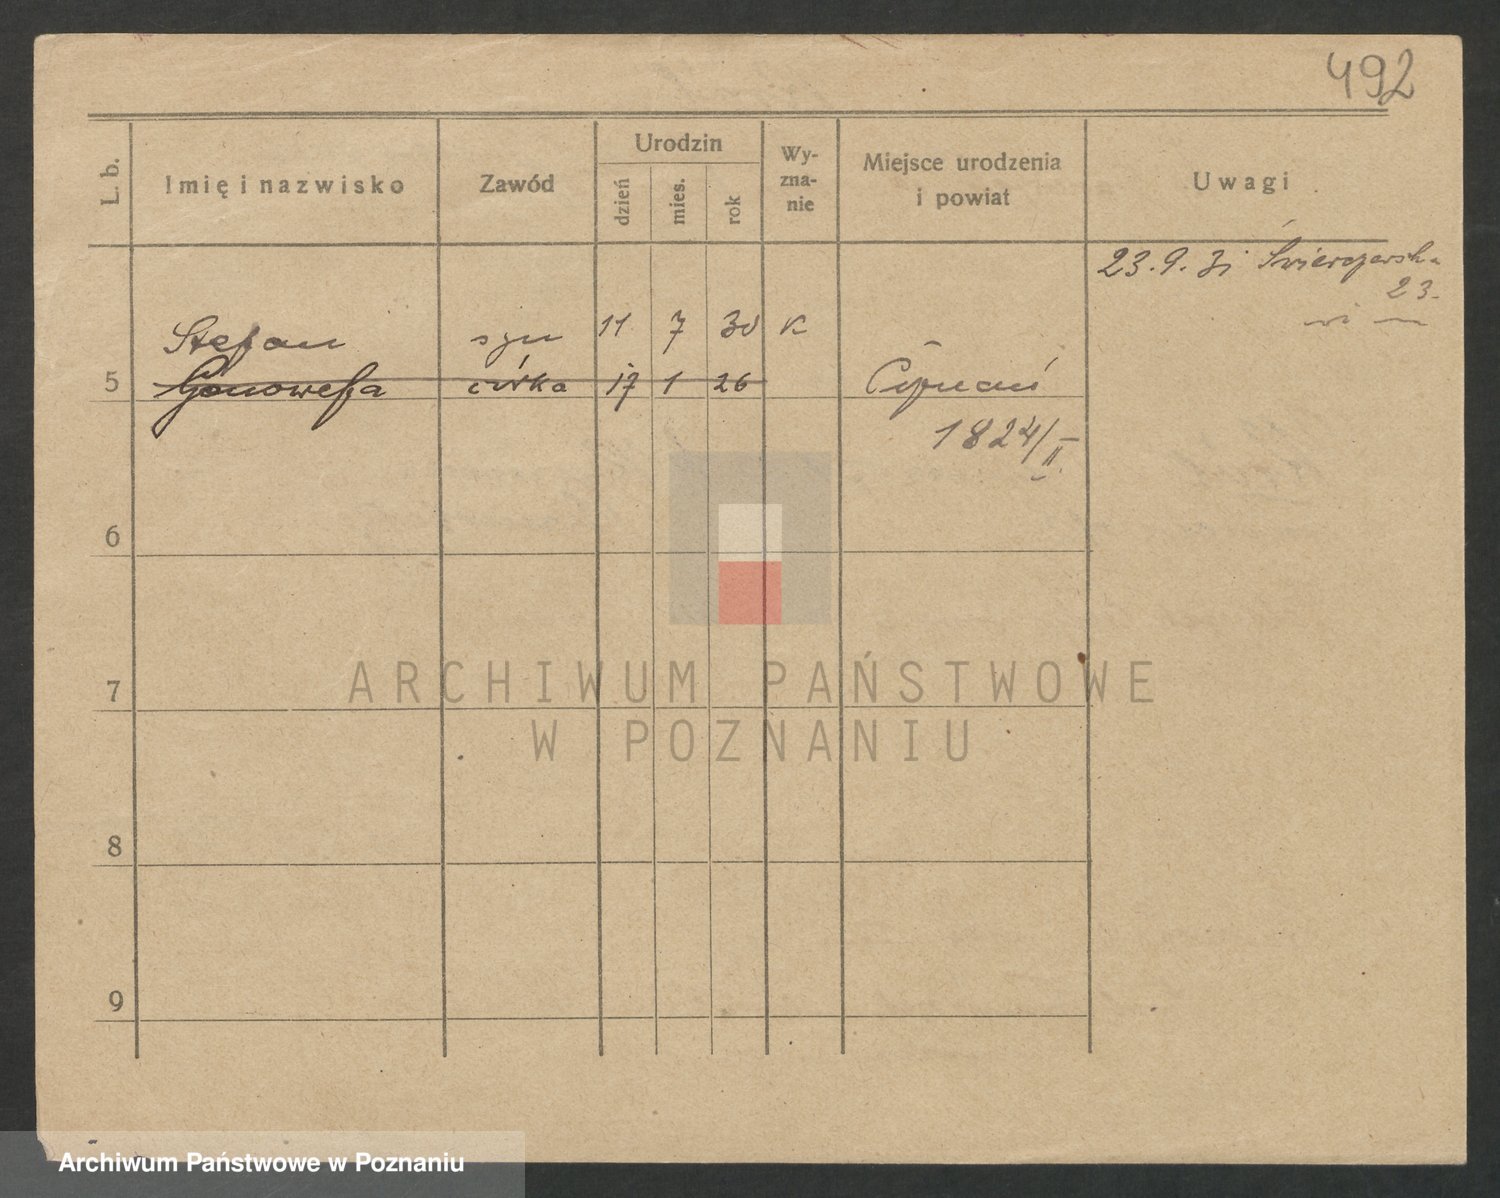 492
L. b.
Imię i nazwisko
Zawód
Urodzin
dzień
mies.
rok
Wy-
zna-
nie
Miejsce urodzenia
i powiat
Uwagi
23. 9. 31
23.
Stefan syn 11 7 30 K
5 Genowefa córka 17 1 26
1824/II.
6
7
8
9
ARCHIWUM PAŃSTWOWE
W POZNANIU
Archiwum Państwowe w Poznaniu